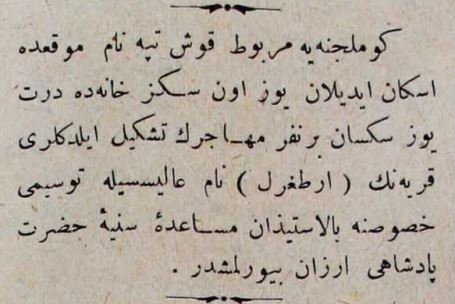 كوملجنه‌يه مربوط قوش تپه نام موقعده
اسكان ايديلان يوز اون سكز خانه‌ده درت
يوز سكسان برنفر مهاجرك تشكيل ايلدكلرى
قريه‌نك ( ارطغرل ) نام عاليسيله توسيمى
خصوصنه بالاستيذان مساعدۀ سنيۀ حضرت
پادشاهى ارزان بيورلمشدر .